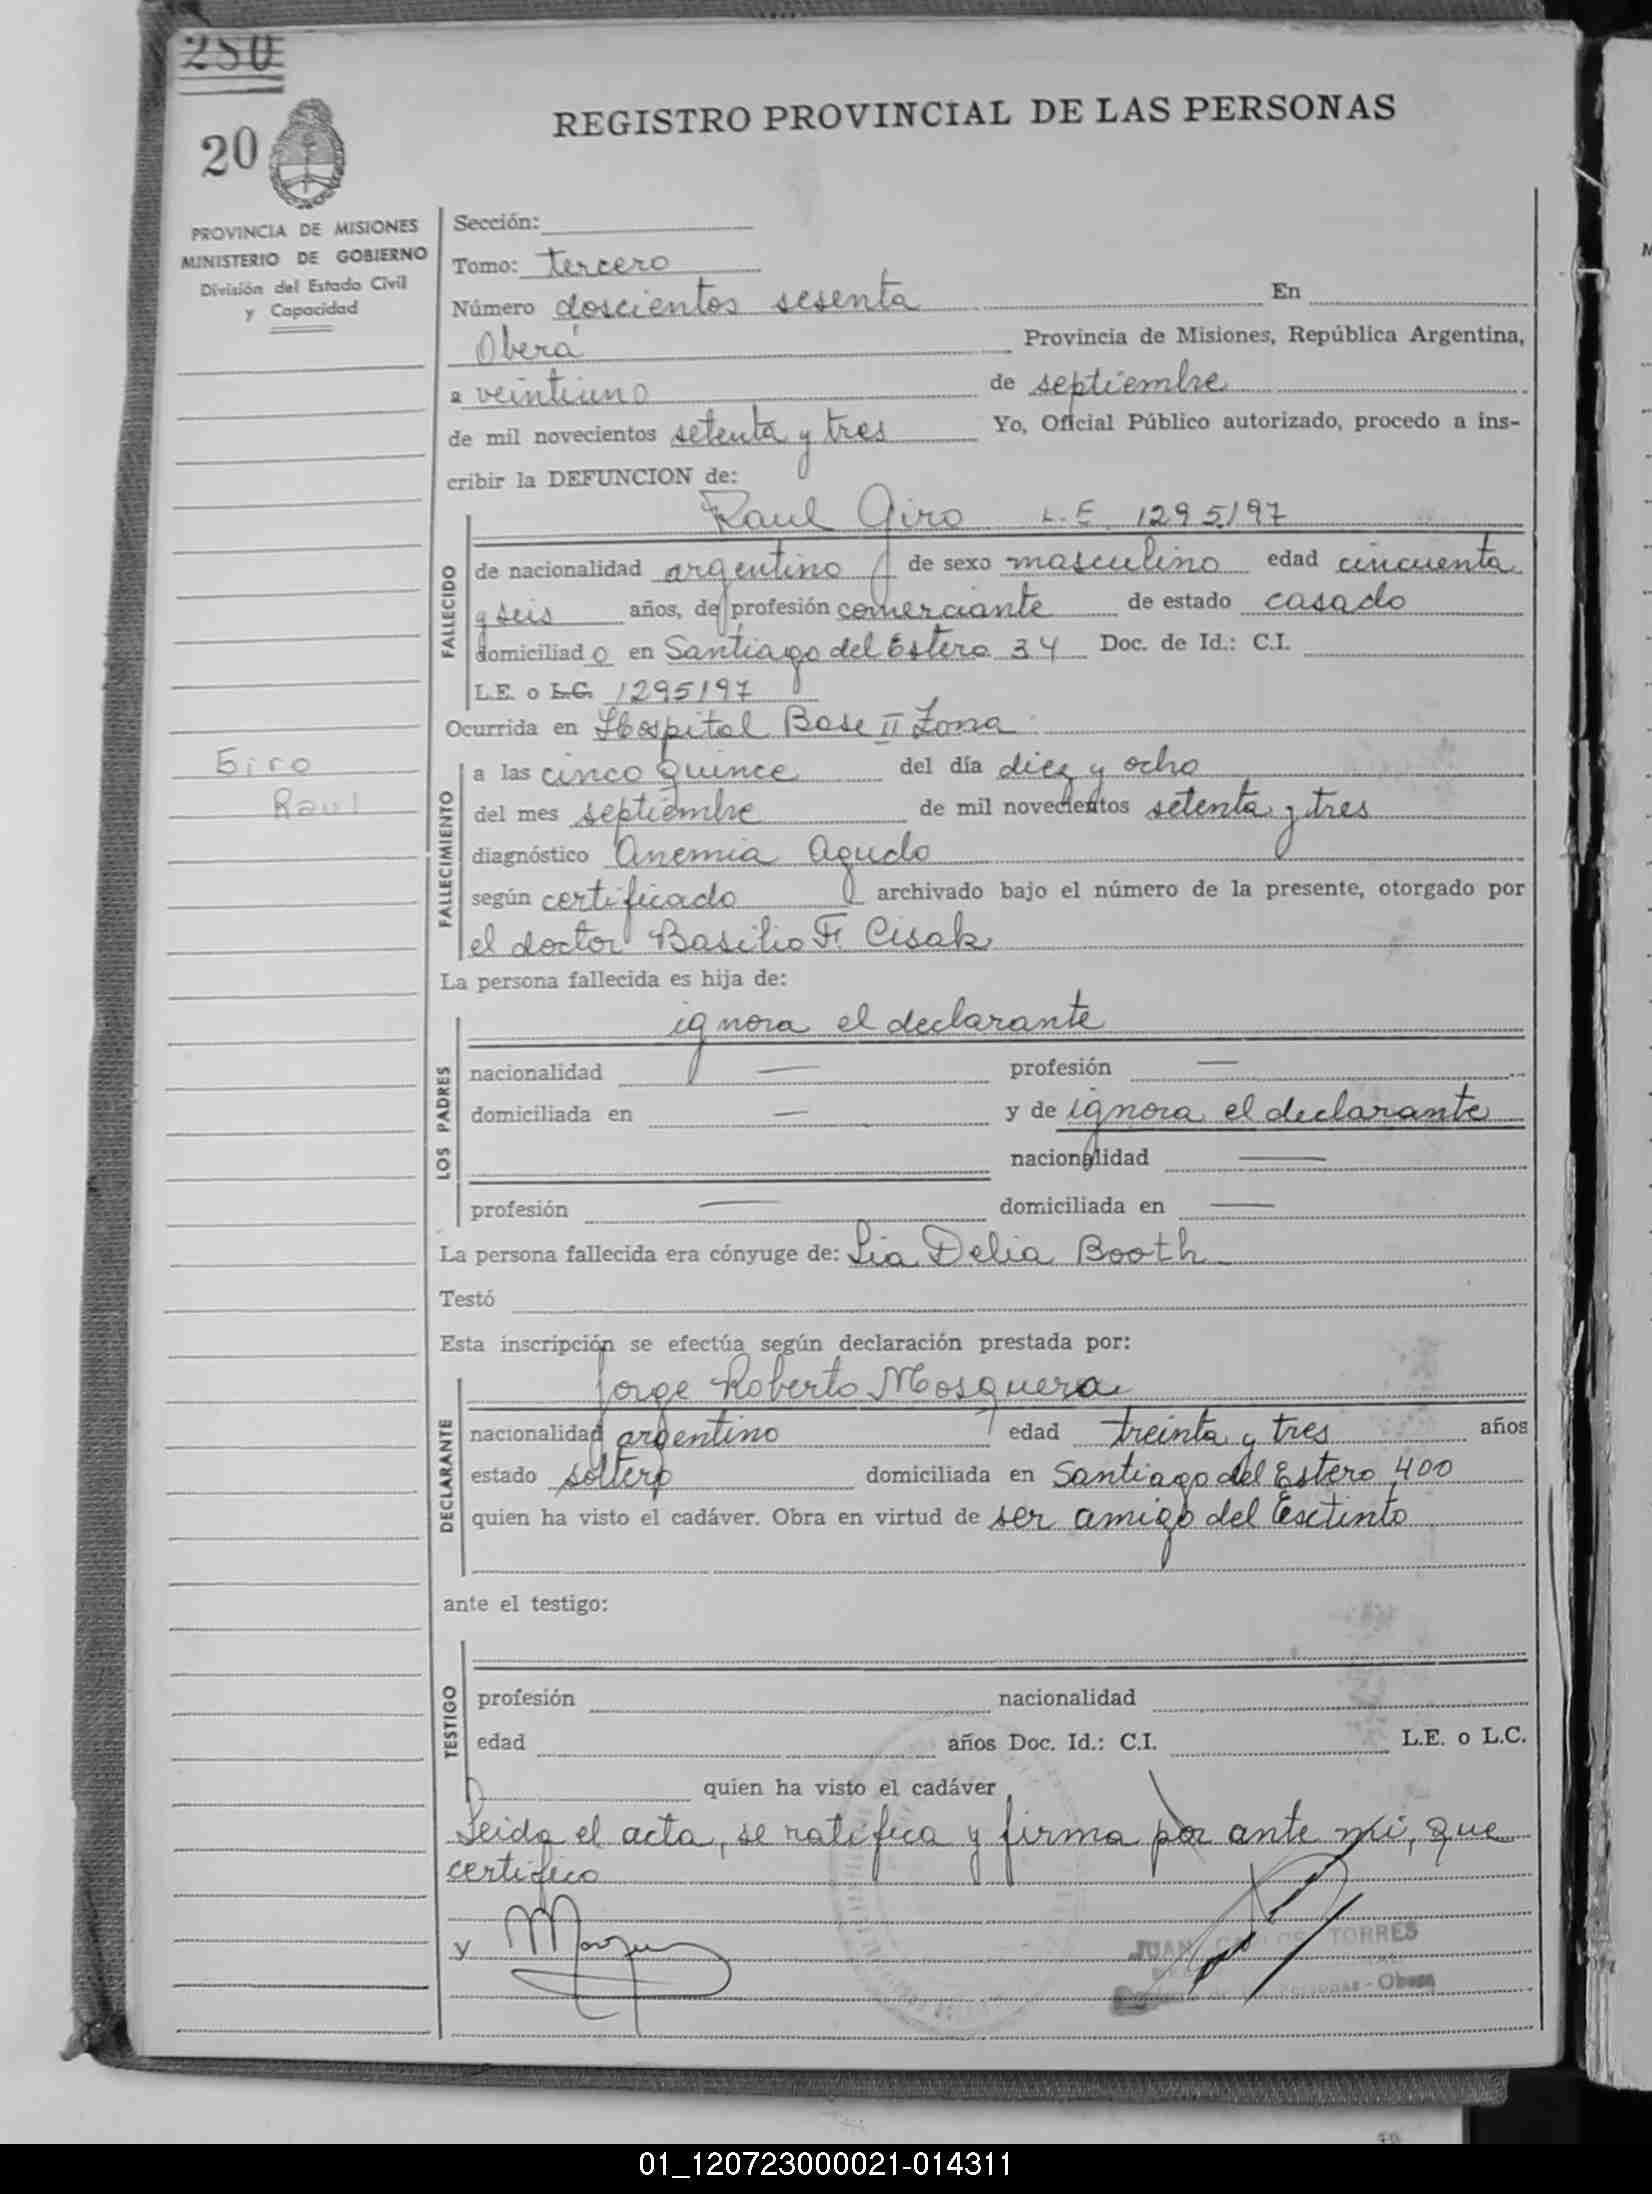 280
20
REGISTRO PROVINCIAL DE LAS PERSONAS
PROVINCIA DE MISIONES
MINISTERIO DE GOBIERNO
División del Estado Civil
y Capacidad
Giro
Raul
Sección:
Tomo: tercero
Número doscientos sesenta En
Oberá Provincia de Misiones, República Argentina,
a veintiuno de septiembre
de mil novecientos setenta y tres Yo, Oficial Público autorizado, procedo a ins-
cribir la DEFUNCION de:
Raul Giro L.E. 1295197
FALLECIDO
de nacionalidad argentino de sexo masculino edad cincuenta
y seis años, de profesión comerciante de estado casado
domiciliado en Santiago del Estero 34 Doc. de Id.: C.I.
L.E. o L.C. 1295197
Ocurrida en Hospital Base II Zona
FALLECIMIENTO
a las cinco quince del día diez y ocho
del mes septiembre de mil novecientos setenta y tres
diagnóstico Anemia Aguda
según certificado archivado bajo el número de la presente, otorgado por
el doctor Basilio F. Cisak
La persona fallecida es hija de:
LOS PADRES
ignora el declarante
nacionalidad — profesión —
domiciliada en — y de ignora el declarante
nacionalidad —
profesión — domiciliada en —
La persona fallecida era cónyuge de: Lia Delia Booth
Testó
Esta inscripción se efectúa según declaración prestada por:
DECLARANTE
Jorge Roberto Mosquera
nacionalidad argentino edad treinta y tres años
estado soltero domiciliada en Santiago del Estero 400
quien ha visto el cadáver. Obra en virtud de ser amigo del Esctinto
ante el testigo:
TESTIGO
profesión nacionalidad
edad años Doc. Id.: C.I. L.E. o L.C.
quien ha visto el cadáver
Leida el acta, se ratifica y firma por ante mi, que
certifico
y
JUAN CARLOS TORRES
Personas - Oberá
01_120723000021-014311